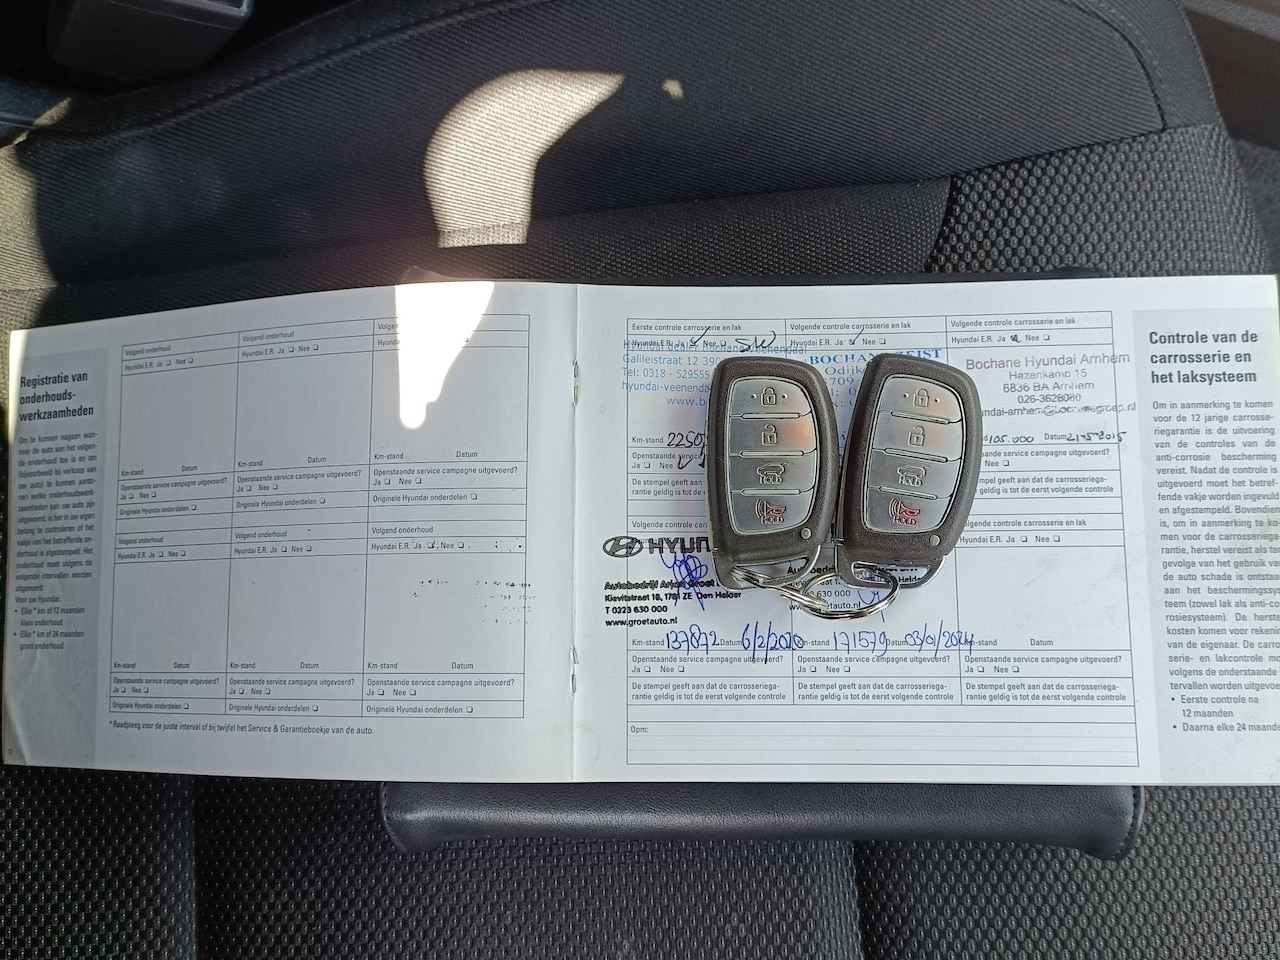 Registratie van
onderhouds-
werkzaamheden
Om te kunnen nagaan wan-
neer de auto aan het volgen-
de onderhoud toe is en om
(bijvoorbeeld bij verkoop van
uw auto) te kunnen aanto-
nen welke onderhoudswerk-
zaamheden aan uw auto zijn
uitgevoerd, is het in uw eigen
belang te controleren of het
vakje van het betreffende on-
derhoud is afgestempeld. Het
onderhoud moet volgens de
volgende intervallen worden
uitgevoerd:
Voor uw Hyundai.
• Elke * km of 12 maanden
klein onderhoud
• Elke * km of 24 maanden
groot onderhoud
Volgend onderhoud
Hyundai E.R. Ja ❏ Nee ❏
Km-stand Datum
Openstaande service campagne uitgevoerd?
Ja ❏ Nee ❏
Originele Hyundai onderdelen ❏
Volgend onderhoud
Hyundai E.R. Ja ❏ Nee ❏
Km-stand Datum
Openstaande service campagne uitgevoerd?
Ja ❏ Nee ❏
Originele Hyundai onderdelen ❏
Km-stand Datum
Openstaande service campagne uitgevoerd?
Ja ❏ Nee ❏
Originele Hyundai onderdelen ❏
Volgend onderhoud
Hyundai E.R. Ja ❏ Nee ❏
Km-stand Datum
Openstaande service campagne uitgevoerd?
Ja ❏ Nee ❏
Originele Hyundai onderdelen ❏
Volgend onderhoud
Hyundai E.R. Ja ❏ Nee ❏
Km-stand Datum
Openstaande service campagne uitgevoerd?
Ja ❏ Nee ❏
Originele Hyundai onderdelen ❏
Volgend onderhoud
Hyundai E.R. Ja ❏ Nee ❏
Km-stand Datum
Openstaande service campagne uitgevoerd?
Ja ❏ Nee ❏
Originele Hyundai onderdelen ❏
* Raadpleeg voor de juiste interval of bij twijfel het Service & Garantieboekje van de auto.
Eerste controle carrosserie en lak
Hyundai E.R. Ja Nee ❏
Hyundai dealer Bochane Veenendaal
Galileistraat 12
Tel: 0318 - 529555
Km-stand
Openstaande
Ja ❏ Nee
De stempel geeft
rantie geldig is tot de
Volgende controle carrosserie en lak
Hyundai E.R. Ja Nee ❏
BOCHANE ZEIST
Volgende controle carrosserie en lak
Hyundai E.R. Ja Nee ❏
Bochane Hyundai Arnhem
Hazenkamp 15
6836 BA Arnhem
026-3628080
105.000 Datum
Nee ❏
geeft aan dat de carrosseriega-
rantie geldig is tot de eerst volgende controle
Volgende controle
HYUN
Autobedrijf Arjan Groot
Kievitstraat 18, 1781 ZE Den Helder
T 0223 630 000
www.groetauto.nl
Km-stand 137872 Datum 6/2/2020
Openstaande service campagne uitgevoerd?
Ja ❏ Nee ❏
De stempel geeft aan dat de carrosseriega-
rantie geldig is tot de eerst volgende controle
630 000
Km-stand 171579 Datum 03/01/2024
Openstaande service campagne uitgevoerd?
Ja ❏ Nee ❏
De stempel geeft aan dat de carrosseriega-
rantie geldig is tot de eerst volgende controle
Km-stand Datum
Openstaande service campagne uitgevoerd?
Ja ❏ Nee ❏
De stempel geeft aan dat de carrosseriega-
rantie geldig is tot de eerst volgende controle
Opm:
HOLD
HOLD
HOLD
HOLD
Controle van de
carrosserie en
het laksysteem
Om in aanmerking te komen
voor de 12 jarige carrosse-
riegarantie is de uitvoering
van de controles van de
anti-corrosie bescherming
vereist. Nadat de controle is
uitgevoerd moet het betref-
fende vakje worden ingevuld
en afgestempeld. Bovendien
is, om in aanmerking te ko-
men voor de carrosseriega-
rantie, herstel vereist als ten
gevolge van het gebruik van
de auto schade is ontstaan
aan het beschermingssys-
teem (zowel lak als anti-cor-
rosiesysteem). De herstel-
kosten komen voor rekening
van de eigenaar. De carros-
serie- en lakcontrole moet
volgens de onderstaande in-
tervallen worden uitgevoerd:
• Eerste controle na
12 maanden
• Daarna elke 24 maanden